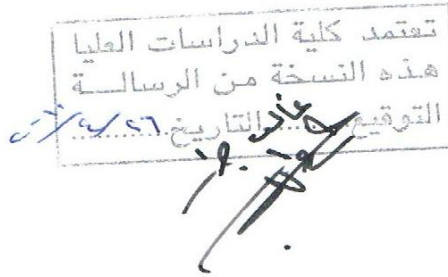 تعتمد كلية الدراسات العليا
هذه النسخة من الرسالـــة
التوقيع.........التاريخ..........